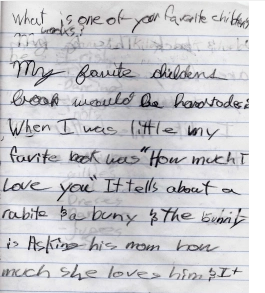 What is one of your favorite childrens
books?
My favite childens
book would be
When I was little my
favite book was "How much I
Love you" It tells about a
rabite & a buny & the bunny
is Asking his mom how
much she loves him & It